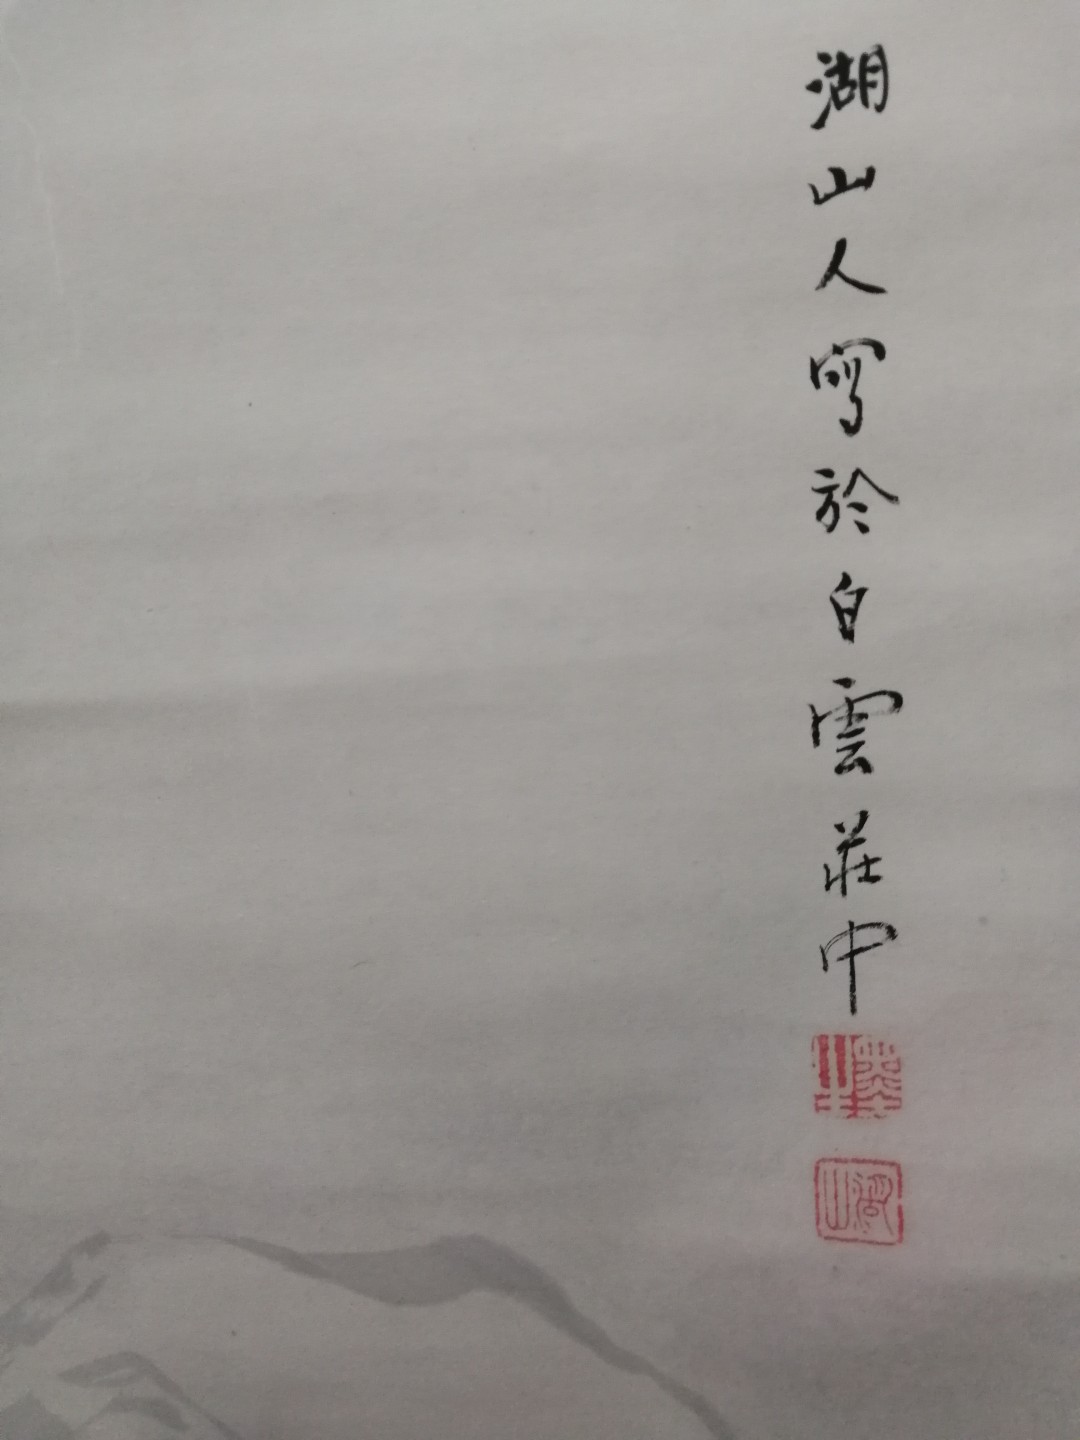 湖山人寫於白雲莊中
湖山